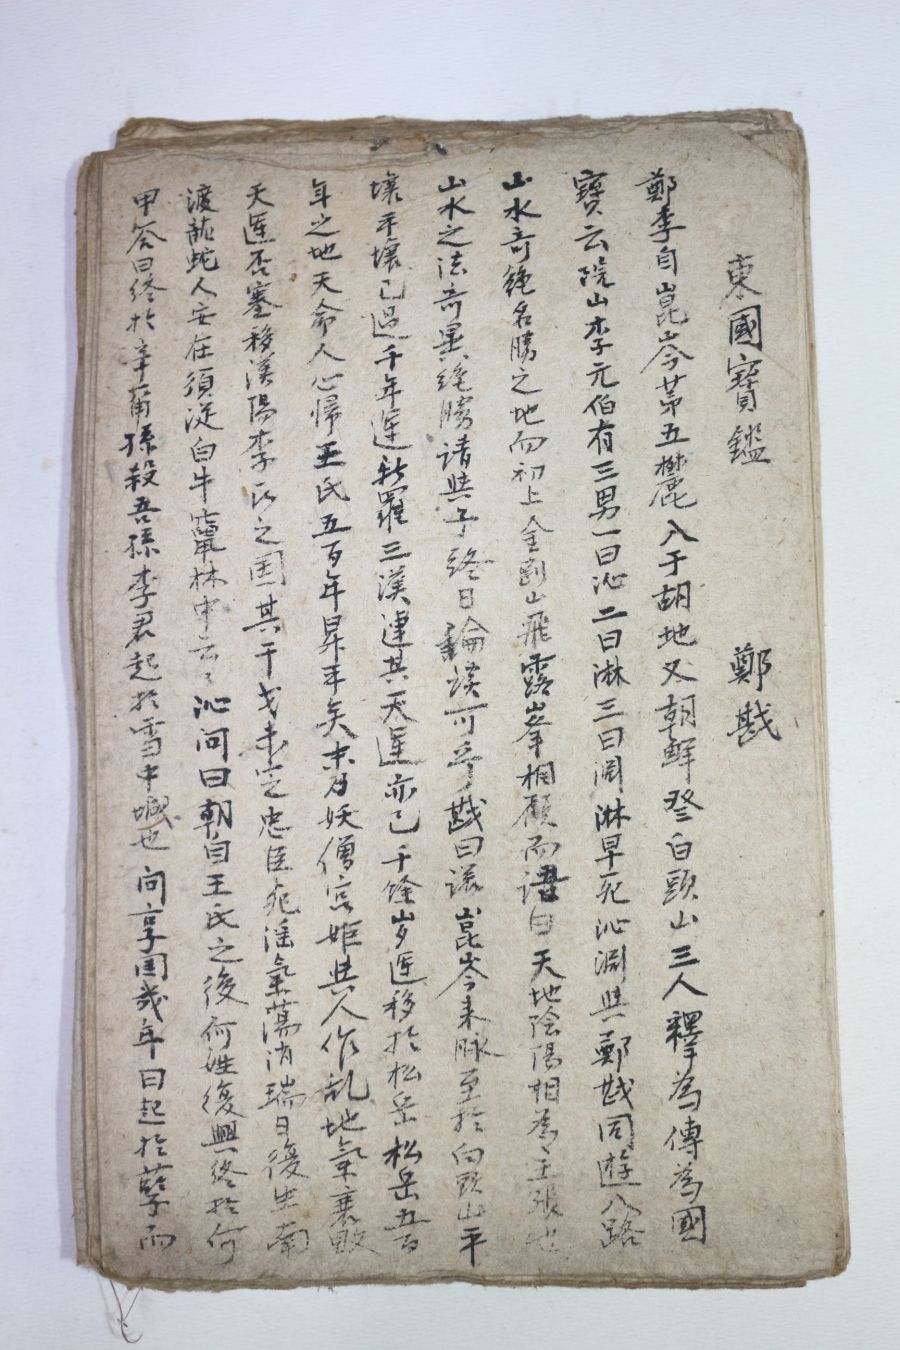 東國寶鑑 鄭戡
鄭李自崑岑第五麓入于胡地又朝鮮登白頭山三人釋為傳為國
寶云院山李元伯有三男一曰沁二曰淋三曰淵淋早死沁淵與鄭戡同遊八路
山水奇絶名勝之地而初上金剛山飛露峯相顧而語曰天地陰陽相為主張也
山水之法奇異絶勝請與子終日論談可乎戡曰諾崑岑来脉至於白頭山平
壤平壤已過千年運新羅三漢運其天運亦已千餘岁运移於松岳松岳五百
年之地天命人心帰王氏五百年昇平矣末及妖僧宮姬與人作乱地氣衰敗
天運否塞移漢陽李氏之国其干戈未定忠臣死淫氣蕩消瑞日復生南
渡龍蛇人安在須從白牛 林中云云沁问曰朝自王氏之後何姓復興終於何
甲答曰終於辛 孫殺吾孫李君起於雪中城也问享国幾年曰起於孽而